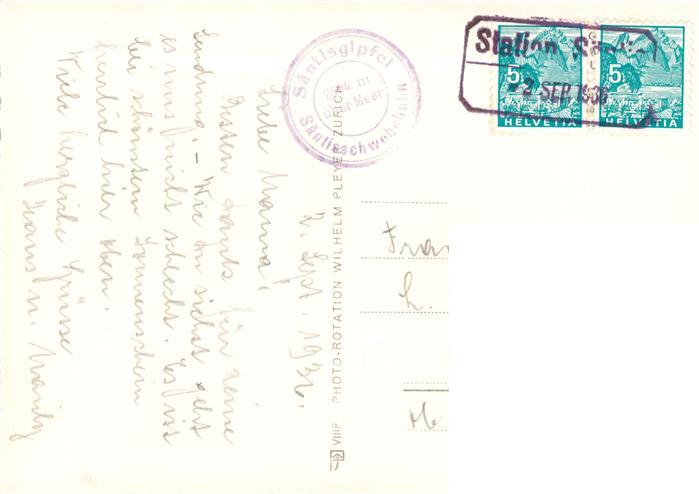 2. Sept. 1936.
Liebe Mama!
Besten Dank für Deine
Sendung! - Wie Du siehst geht
es uns nicht schlecht. Es ist
bei schönstem Sonnenschein
herrlich hier oben.
Viele herzliche Grüsse
Hans u. Marily
Säntisgipfel
2504 m
über Meer
Säntisschwebebahn
Station Säntis
- 2 SEP 1936
5
HELVETIA
5
HELVETIA
VIIIF PHOTO-ROTATION WILHELM PLEYER ZÜRICH
Frau